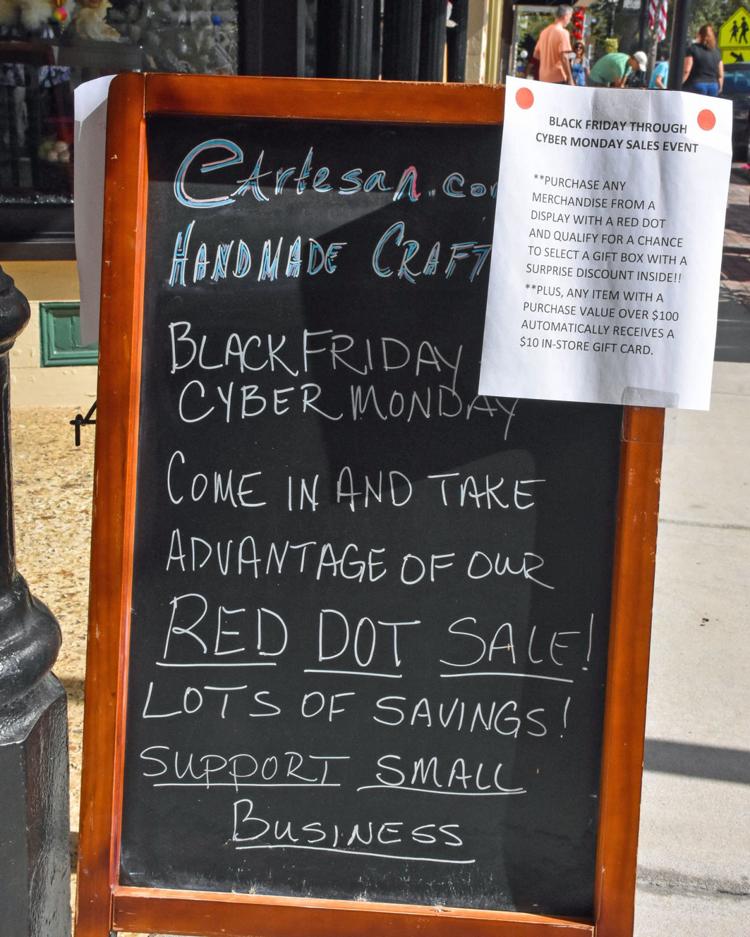 eArtesan.co
HANDMADE CRAFT
BLACK FRIDAY
CYBER MONDAY
COME IN AND TAKE
ADVANTAGE OF OUR
RED DOT SALE!
LOTS OF SAVINGS!
SUPPORT SMALL
BUSINESS
BLACK FRIDAY THROUGH
CYBER MONDAY SALES EVENT
**PURCHASE ANY
MERCHANDISE FROM A
DISPLAY WITH A RED DOT
AND QUALIFY FOR A CHANCE
TO SELECT A GIFT BOX WITH A
SURPRISE DISCOUNT INSIDE!!
**PLUS, ANY ITEM WITH A
PURCHASE VALUE OVER $100
AUTOMATICALLY RECEIVES A
$10 IN-STORE GIFT CARD.